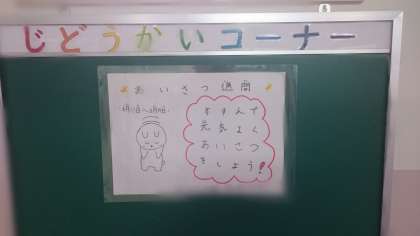 じどうかいコーナー
あいさつ週間
すすんで
元気よく
あいさつ
をしよう!